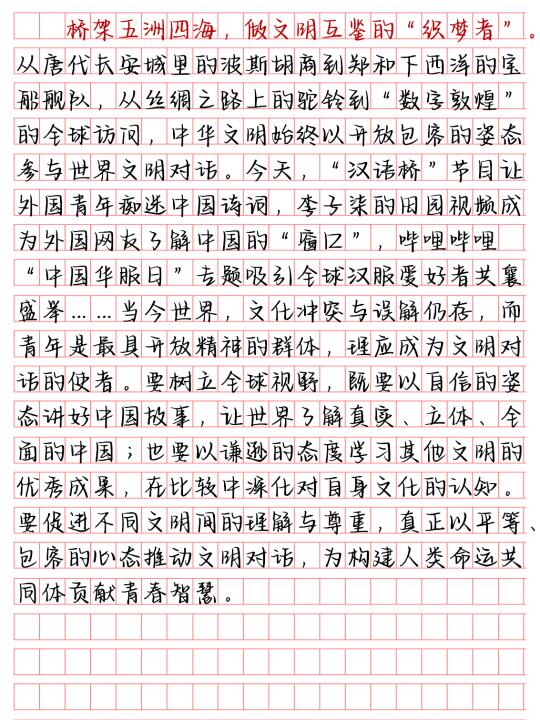 桥架五洲四海，做文明互鉴的“织梦者”。
从唐代长安城里的波斯胡商到郑和下西洋的宝
船舰队，从丝绸之路上的驼铃到“数字敦煌”
的全球访问，中华文明始终以开放包容的姿态
参与世界文明对话。今天，“汉语桥”节目让
外国青年痴迷中国诗词，李子柒的田园视频成
为外国网友了解中国的“窗口”，哔哩哔哩
“中国华服日”专题吸引全球汉服爱好者共襄
盛举……当今世界，文化冲突与误解仍存，而
青年是最具开放精神的群体，理应成为文明对
话的使者。要树立全球视野，既要以自信的姿
态讲好中国故事，让世界了解真实、立体、全
面的中国；也要以谦逊的态度学习其他文明的
优秀成果，在比较中深化对自身文化的认知。
要促进不同文明间的理解与尊重，真正以平等、
包容的心态推动文明对话，为构建人类命运共
同体贡献青春智慧。